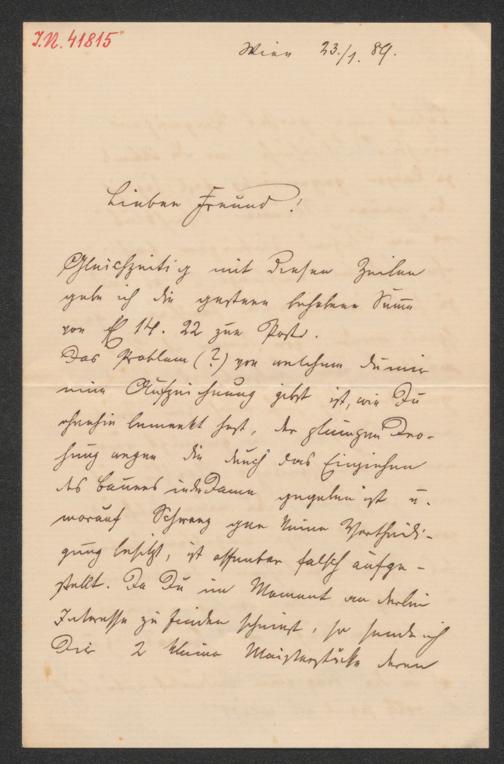 I.N. 41815
Wien 23./1. 89.
Lieber Freund!
Gleichzeitig mit diesen Zeilen
gebe ich die gestern behobene Summe
von fl 14. 22 zur Post.
Das Problem (?) von welchem du mir
eine Aufzeichnung gibst ist, wie Du
ohnehin bemerkt hast, der plumpen Dro-
hung wegen die durch das Einziehen
des Bauers in die Dame gegeben ist u.
worauf Schwarz gar keine Vertheidi-
gung besitzt, ist offenbar falsch aufge-
stellt. Da Du im Moment an derlei
Interesse zu finden scheinst, so sende ich
Dir 2 kleine Meisterstücke deren